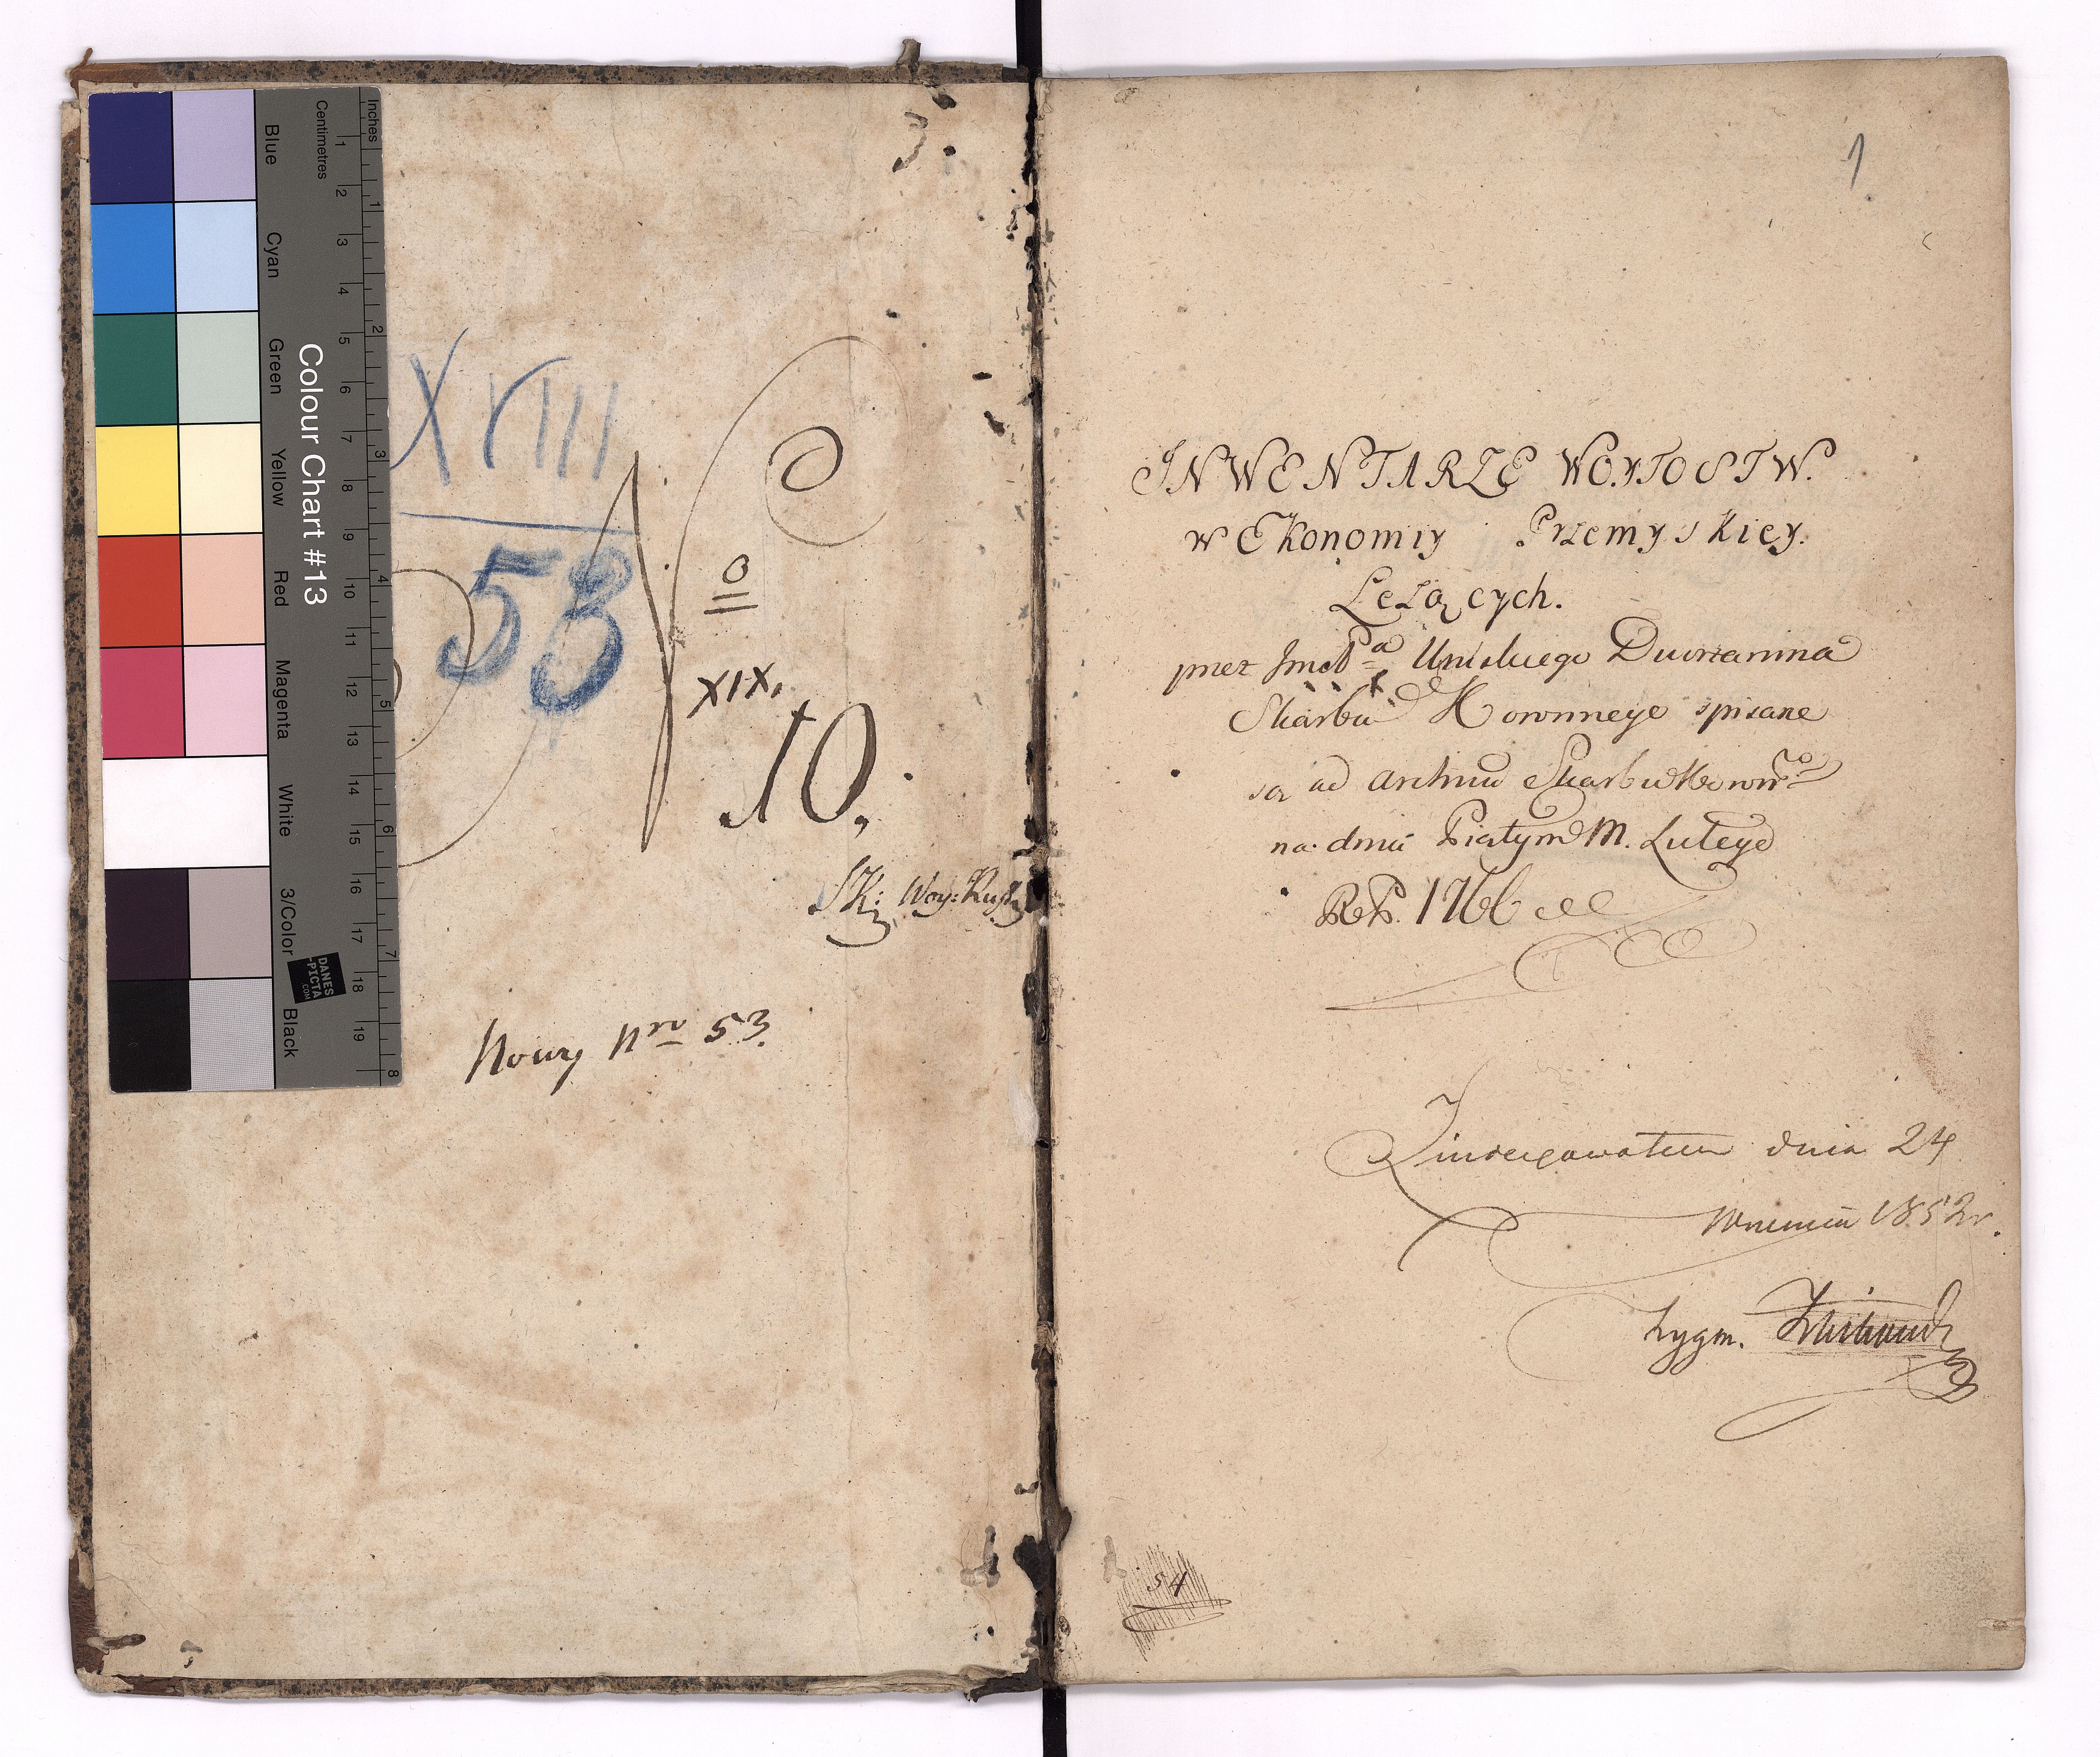 3.
XVIII
58
N
o
XIX.
10.
SK: Woy: Rusk
Nowy Nro 53.
Inches
Centimetres
1 2 3 4 5 6 7 8 9 10 11 12 13 14 15 16 17 18 19
1 2 3 4 5 6 7 8
Colour Chart #13
Blue Cyan Green Yellow Red Magenta White 3/Color Black
DANES
-PICTA
.COM
1
INWENTARZE WOYTOSTW.
w EKonomiy Przemyskiey.
Leżących.
przez Jmc Pa Uniskiego Dworzanina
Skarbu Koronnego spisane
są ad archiwu Skarbu Koronngo
na dniu Piątym M. Lutego
RP. 1766
Zindagowatem dnia 24
Wrzesnia 1852 r.
Zygm.
54